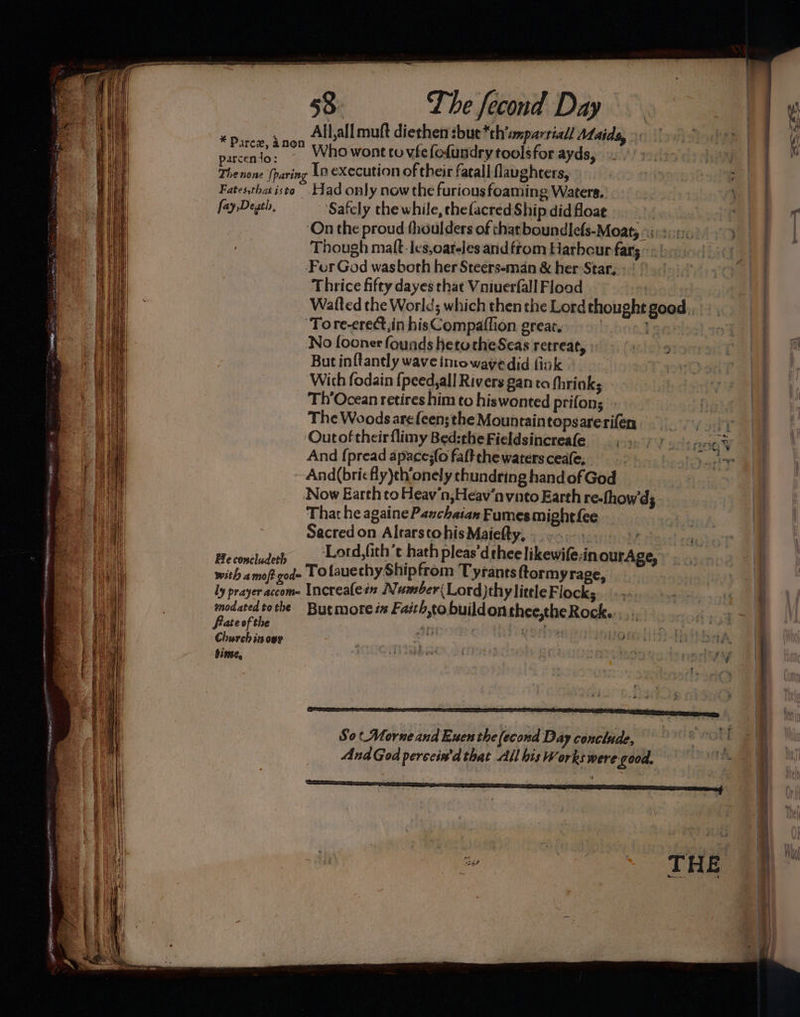 58 The ſecond Day
All,all muſt die then : but *th'impartiall Maids,
Who wont to vſe ſo ſundry tools for ayds,
In execution of their fatall ſlaughters,
Had only now the furious foaming Waters.
Safely the while, the ſacred Ship did float
On the proud ſhoulders of that boundleſs-Moat,
Though maſt-les, oar-les and from Harbour far;
For God was both her Steers-man & her Star.
Thrice fifty dayes that Vniuerſall Flood
Waſted the World; which then the Lord thought good
To re-erect, in his Compaſſion great.
No ſooner ſounds he to the Seas retreat,
But inſtantly wave into wave did ſink
With ſodain ſpeed, all Rivers gan to ſhrink;
Th'Ocean retires him to his wonted priſon;
The Woods are ſeen; the Mountain tops are riſen
Out of their ſlimy Bed: the Fields increaſe
And ſpread apace; ſo faſt the waters ceaſe.
And (briefly) th'onely thundring hand of God
Now Earth to Heav'n, Heav'n vnto Earth re-ſhow'd;
That he againe Panchaian Fumes might ſee
Sacred on Altars to his Maieſty.
Lord, ſith 't hath pleas'd thee likewiſe, in our Age,
To ſaue thy Ship from Tyrants ſtormy rage,
Increaſe in Number (Lord) thy little Flock;
But more in Faith, to build on thee, the Rock.
* Parcæ, à non
parcendo:
The none ſparing
Fates, that is to
ſay, Death.
He concludeth
with a moſt god-
ly prayer accom-
modated to the
ſtate of the
Church in our
time.
So Morne and Euen the ſecond Day conclude,
And God perceiv'd that All his Works were good.
THE